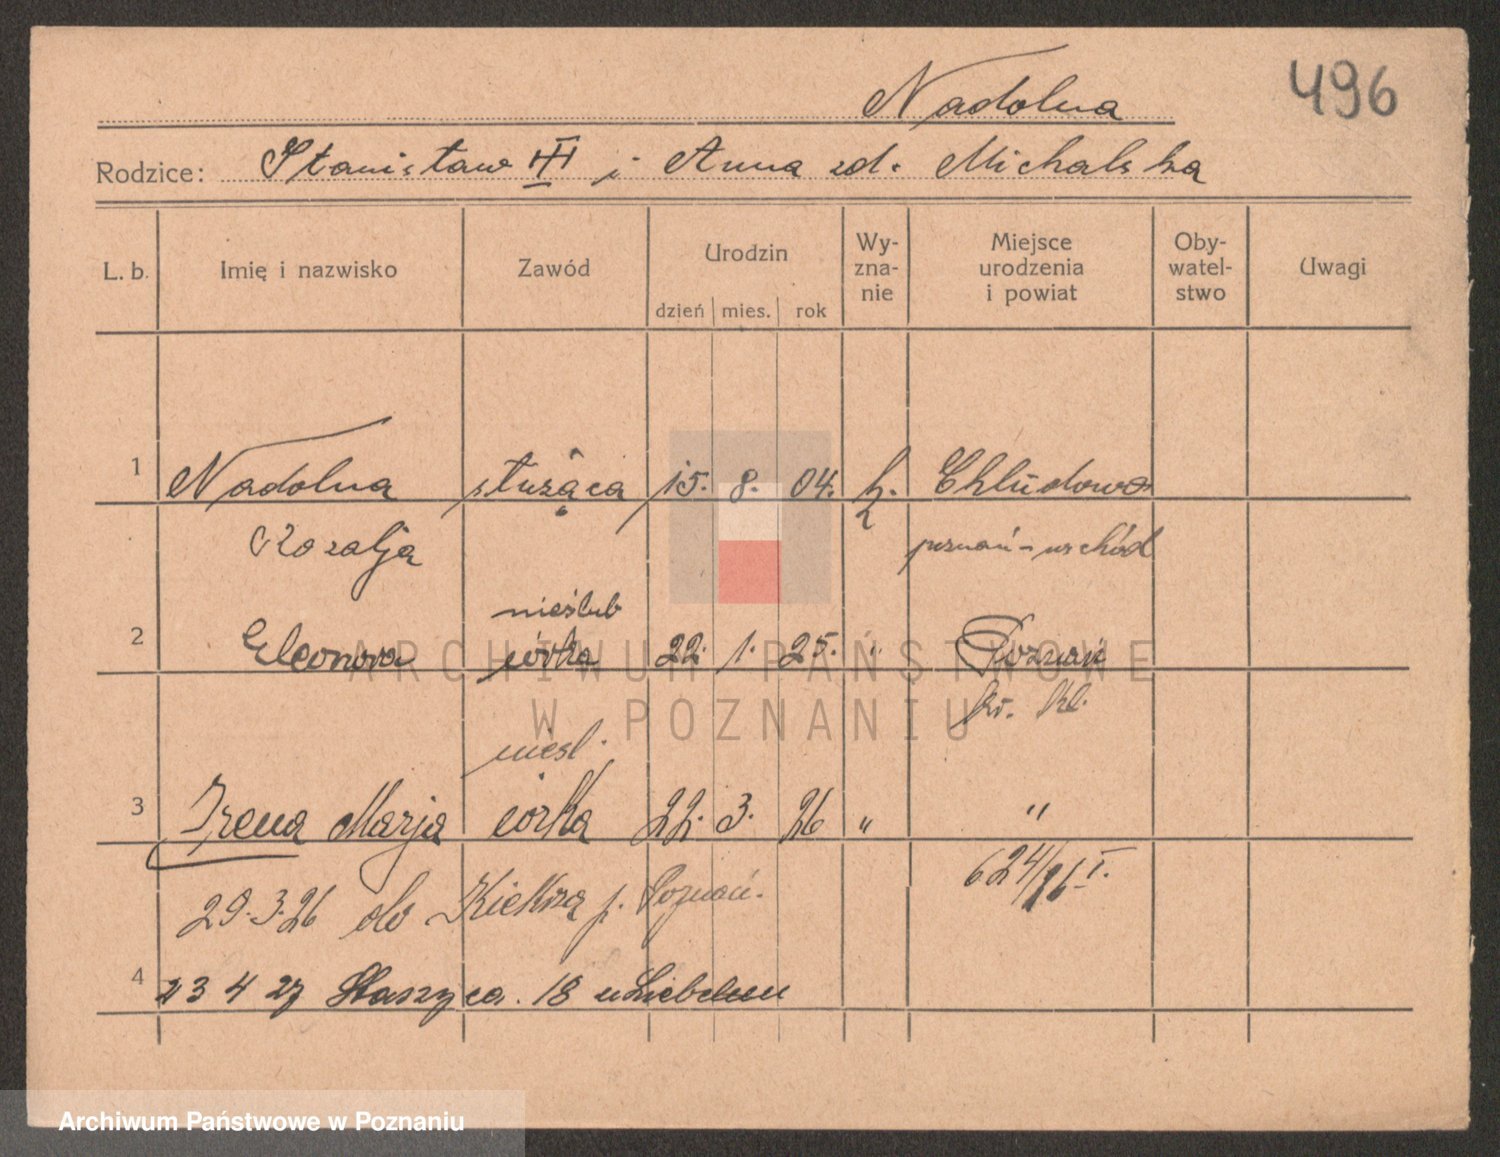 Nadolna
496
Rodzice: Stanisław III i Anna zd. Michalska
L. b. Imię i nazwisko Zawód Urodzin dzień mies. rok Wy-zna-nie Miejsce urodzenia i powiat Oby-watel-stwo Uwagi
1 Nadolna służąca 15. 8. 04. k. Chludowo
Rozalja poznań-wschód
nieślub
2 Eleonora córka 22. 1. 25. " Poznań
niesl.
3 Irena Marja córka 22. 3. 26 " "
624/26 I.
29.3.26 do Kiekrza p. Poznań.
4 23 4 27 Staszyca. 18 u
ARCHIWUM PAŃSTWOWE
W POZNANIU
Archiwum Państwowe w Poznaniu